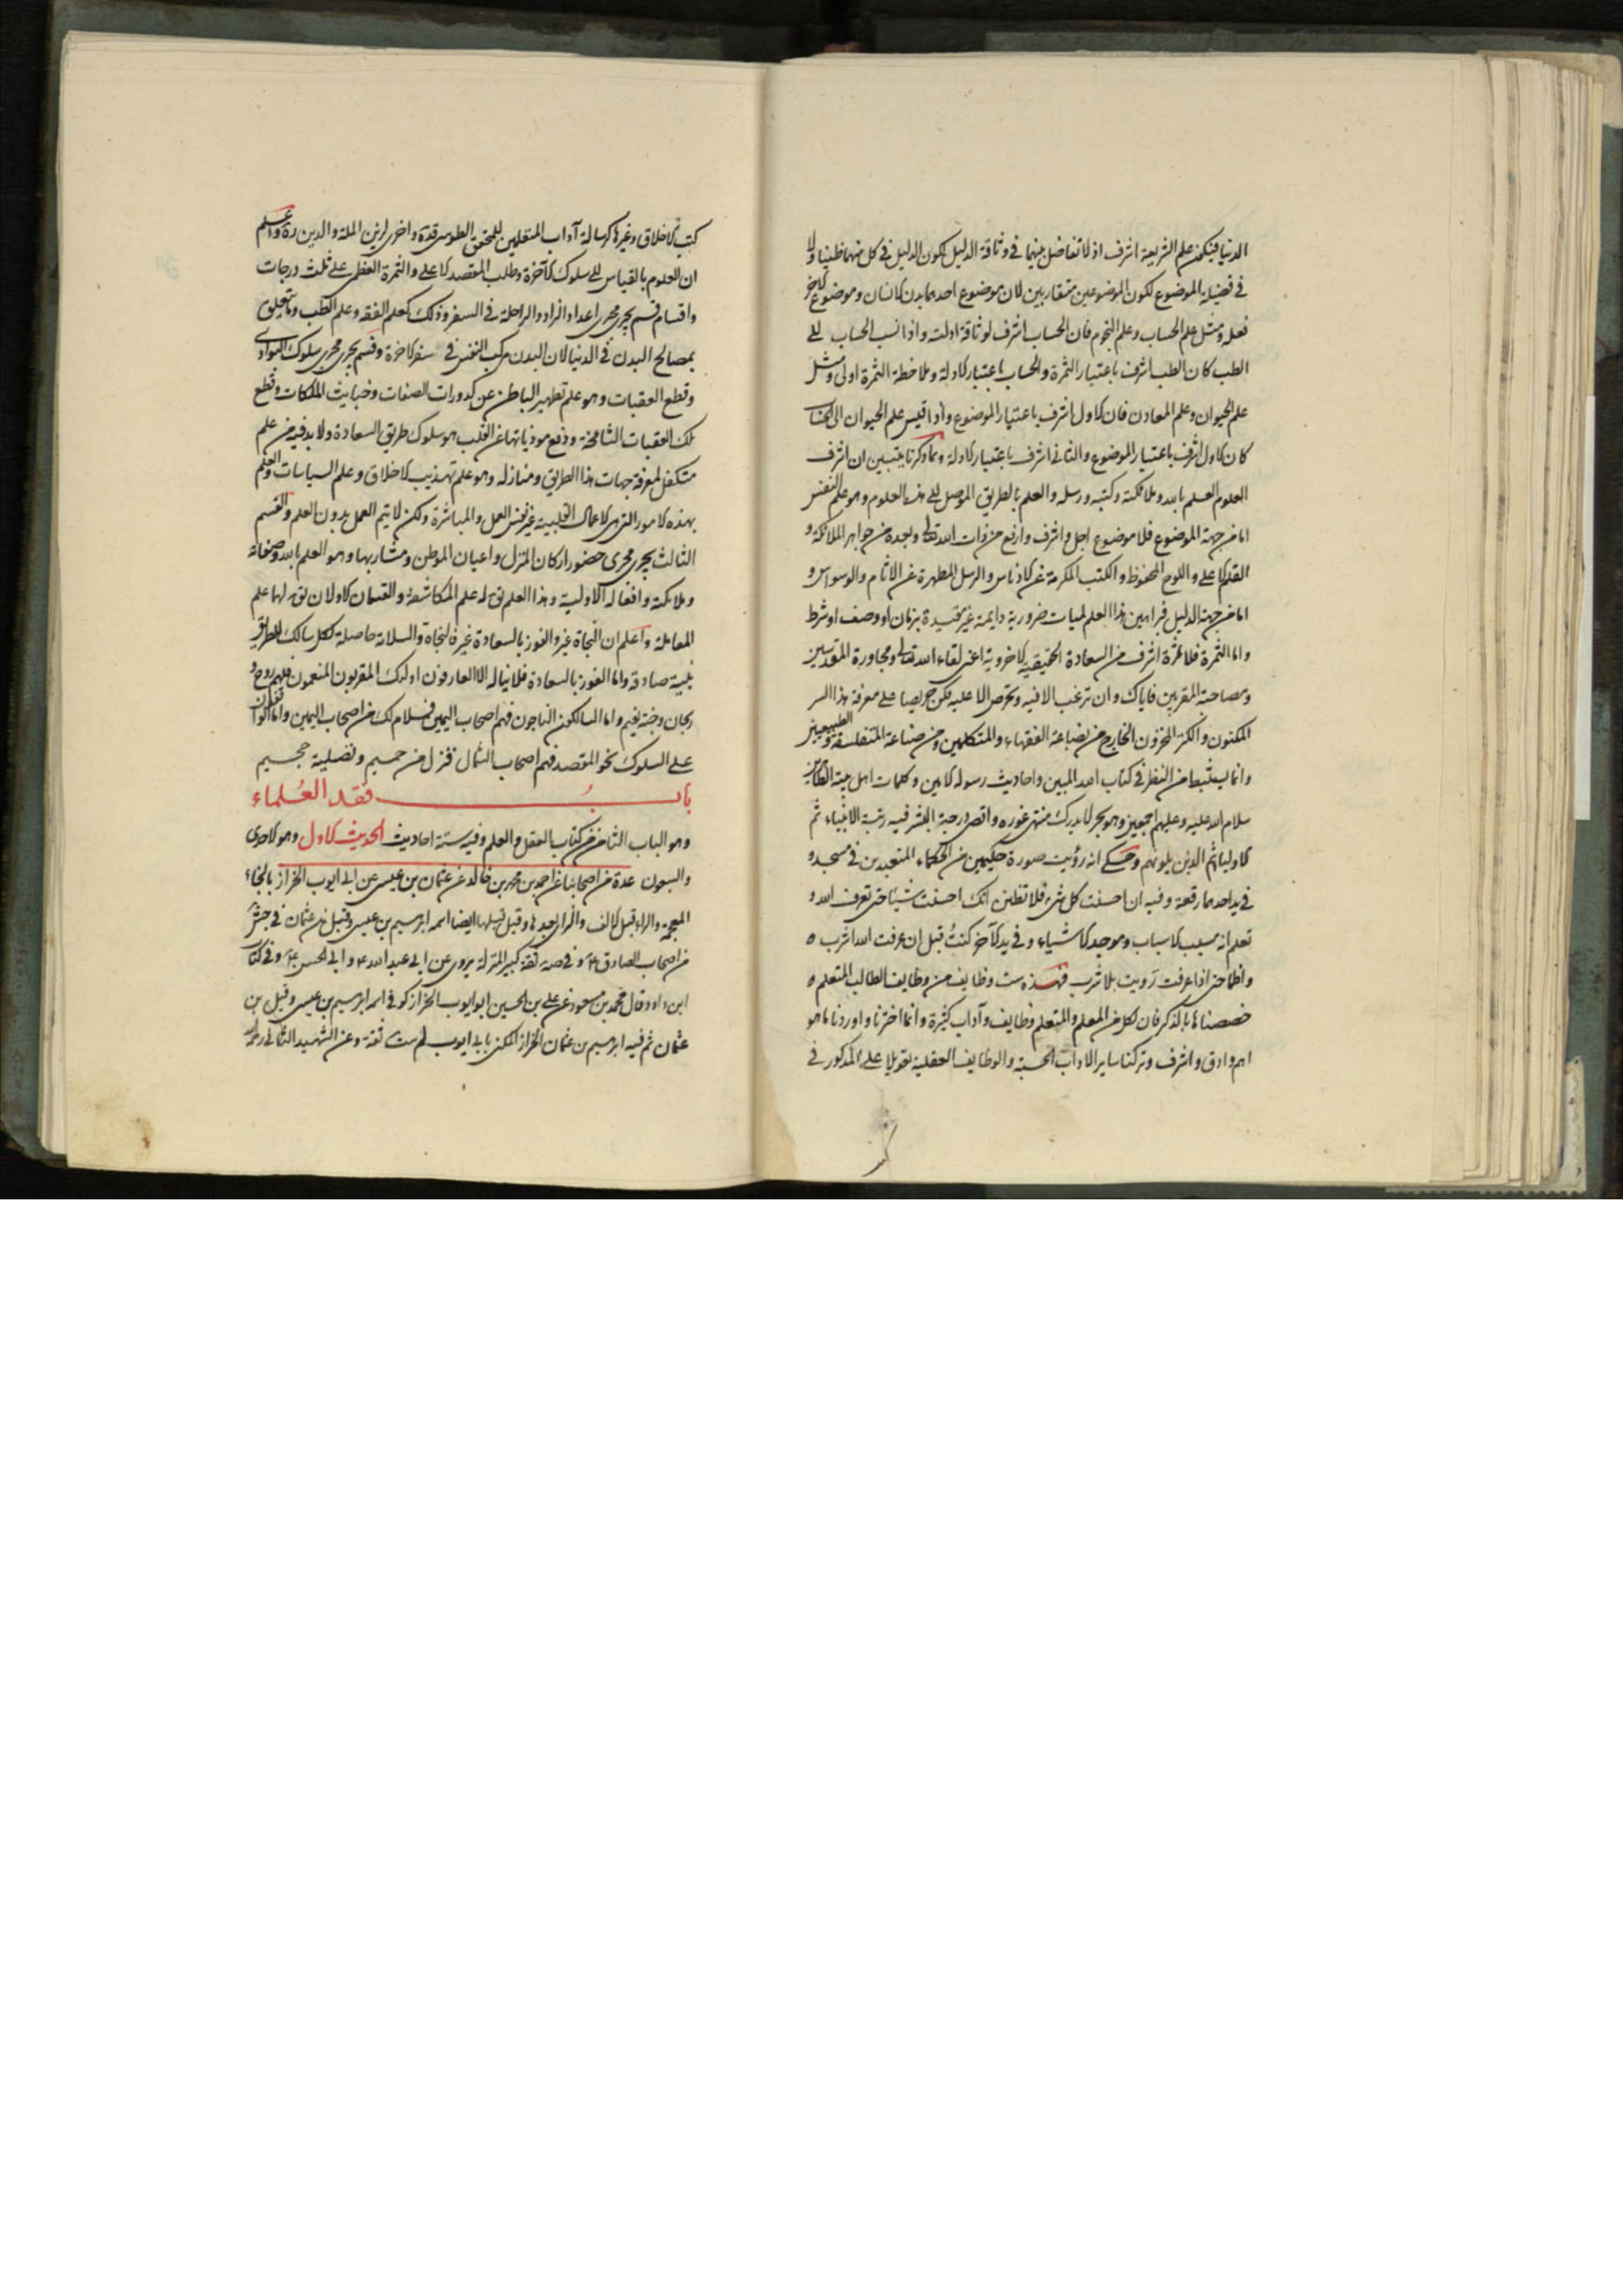 الدنيا فيكون علم الشريعة اشرف اذ لا تفاضل بينهما في وثاقة الدليل لكون الدليل في كل منهما ظنيا ولا
في فضيلة الموضوع لكون الموضوعين متقاربين لان موضوع احدهما بدن الانسان وموضوع الاخر
فعله ومثل علم الحساب وعلم النجوم فان الحساب اشرف لوثاقة ادلته واذا نسب الحساب الى
الطب كان الطب اشرف باعتبار الثمرة والحساب باعتبار الادلة وملاحظة الثمرة اولى ومثل
علم الحيوان وعلم المعادن فان الاول اشرف باعتبار الموضوع واذا قيس علم الحيوان الى الحساب
كان الاول اشرف باعتبار الموضوع والثاني اشرف باعتبار الادلة ومما ذكرنا يتبين ان اشرف
العلوم العلم بالله وملائكته وكتبه ورسله والعلم بالطريق الموصل الى هذه العلوم وهو علم النفس
اما من جهة الموضوع فلا موضوع اجل واشرف وارفع من ذات الله تعالى وبعده من جواهر الملائكة و
القلم الاعلى واللوح المحفوظ والكتب المكرمة عن الادناس والرسل المطهرة عن الاثام والوسواس و
اما من جهة الدليل فبراهين هذا العلم لميات ضرورية دايمة غير مقيدة بزمان او وصف او شرط
واما الثمرة فلا ثمرة اشرف من السعادة الحقيقية الاخروية اعنى لقاء الله تعالى ومجاورة المقدسين
ومصاحبة المقربين فاياك وان ترغب الا فيه وتحرص الا عليه فكن حريصا على معرفة هذا السر
المكنون والكنز المخزون الخارج من بضاعة الفقهاء والمتكلمين ومن صناعة المتفلسفة والطبيعيين
وانما يستنبط من النظر في كتاب الله المبين واحاديث رسوله الامين وكلمات اهل بيته الطاهرين
سلام الله عليه وعليهم اجمعين وهو بحر لا يدرك منتهى غوره واقصى درجة البشر فيه رتبة الانبياء ثم
الاولياء ثم الذين يلونهم وحكى انه رؤيت صورة حكيمين من الحكماء المتعبدين في مسجد و
في يد احدهما رقعة وفيه ان احسنت كل شيء فلا تظنن انك احسنت شيئا حتى تعرف الله و
تعلم انه مسبب الاسباب وموجد الاشياء وفي يد الآخر كنتُ قبل ان عرفت الله اشرب
واظما حتى اذا عرفت رويت بلا شرب فهذه ست وظايف من وظايف الطالب المتعلم
خصصناها بالذكر فان لكل من المعلم والمتعلم وظايف وآداب كثيرة وانما اخترنا واوردنا ما هو
اهم وادق واشرف وتركنا ساير الاداب الحسية والوظايف العقلية تعويلا على المذكور في
كتب الاخلاق وغيرها كرسالة آداب المتعلمين للمحقق الطوسى قده واخرى لزين الملة والدين ره واعلم
ان العلوم بالقياس الى سلوك الآخرة وطلب المقصد الاعلى والثمرة العظمى على ثلث درجات
واقسام قسم يجرى مجرى اعداد الزاد والراحلة في السفر وذلك كعلم الفقه وعلم الطب وما يتعلق
بمصالح البدن في الدنيا لان البدن مركب النفس في سفر الاخرة وقسم يجرى مجرى سلوك البوادى
وقطع العقبات وهو علم تطهير الباطن عن كدورات الصفات وخبايث الملكات وقطع
تلك العقبات الشامخة ودفع موذياتها عن القلب هو سلوك طريق السعادة ولا بد فيه من علم
متكفل لمعرفة جهات هذا الطريق ومنازله وهو علم تهذيب الاخلاق وعلم السياسات والعلم
بهذه الامور التى هى الاعمال القلبية غير نفس العمل والمباشرة ولكن لا يتم العمل بدون العلم والقسم
الثالث يجرى مجرى حضور اركان المنزل واعيان الموطن ومشاربها وهو العلم بالله وصفاته
وملائكته وافعاله الاولية وهذا العلم يق له علم المكاشفة والقسمان الاولان يق لهما علم
المعاملة واعلم ان النجاة غير والفوز بالسعادة غير فالنجاة والسلامة حاصلة لكل سالك للطريق
بنية صادقة واما الفوز بالسعادة فلا يناله الا العارفون اولئك المقربون المنعمون فلهم روح و
ريحان وجنة نعيم واما السالكون الناجون فهم اصحاب اليمين فسلام لك من اصحاب اليمين واما
على السلوك نحو المقصد فهم اصحاب الشمال فنزل من حميم وتصلية جحيم
باب فقد العُلماء
وهو الباب الثامن من كتاب العقل والعلم وفيه ستة احاديث الحديث الاول وهو الاحدى
والسبعون عدة من اصحابنا عن احمد بن محمد بن خالد عن عثمان بن عيسى عن ابى ايوب الخزاز بالخاء
المعجمة والراء قبل الالف والزاى بعدها وقيل قبلها ايضا اسمه ابرهيم بن عيسى وقيل بن عثمان في جش
من اصحاب الصادق ع و في صه ثقة كبير المنزلة يروى عن ابى عبد الله ع و ابى الحسن ع وفي كتاب
ابن داود قال محمد بن مسعود عن على بن الحسين ابو ايوب الخزاز كوفى اسمه ابرهيم بن عيسى وقيل بن
عثمان ثم فيه ابرهيم بن عثمان الخزاز المكنى بابى ايوب ثقة وعن الشهيد الثانى رحمه الله